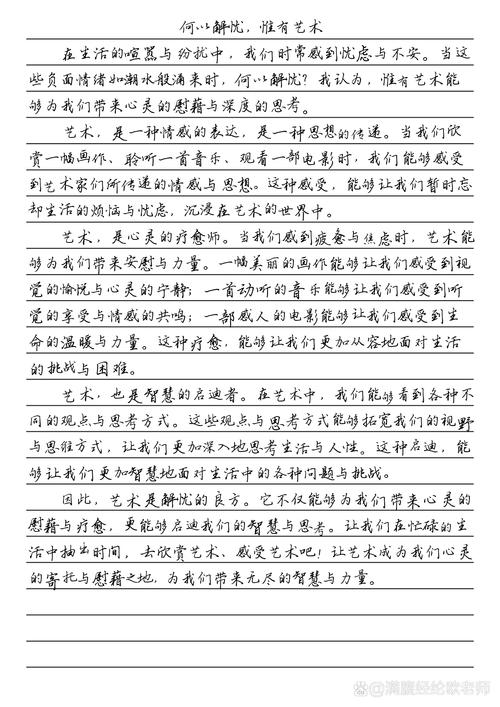 何以解忧，惟有艺术
在生活的喧嚣与纷扰中，我们时常感到忧虑与不安。当这
些负面情绪如潮水般涌来时，何以解忧？我认为，惟有艺术能
够为我们带来心灵的慰藉与深度的思考。
艺术，是一种情感的表达，是一种思想的传递。当我们欣
赏一幅画作、聆听一首音乐、观看一部电影时，我们能够感受
到艺术家们所传递的情感与思想。这种感受，能够让我们暂时忘
却生活的烦恼与忧虑，沉浸在艺术的世界中。
艺术，是心灵的疗愈师。当我们感到疲惫与焦虑时，艺术能
够为我们带来安慰与力量。一幅美丽的画作能够让我们感受到视
觉的愉悦与心灵的宁静；一首动听的音乐能够让我们感受到听
觉的享受与情感的共鸣；一部感人的电影能够让我们感受到生
命的温暖与力量。这种疗愈，能够让我们更加从容地面对生活
的挑战与困难。
艺术，也是智慧的启迪者。在艺术中，我们能够看到各种不
同的观点与思考方式。这些观点与思考方式能够拓宽我们的视野
与思维方式，让我们更加深入地思考生活与人性。这种启迪，能
够让我们更加智慧地面对生活中的各种问题与挑战。
因此，艺术是解忧的良方。它不仅能够为我们带来心灵的
慰藉与疗愈，更能够启迪我们的智慧与思考。让我们在忙碌的生
活中抽出时间，去欣赏艺术、感受艺术吧！让艺术成为我们心灵
的寄托与慰藉之地，为我们带来无尽的智慧与力量。
@满腹经纶欧老师